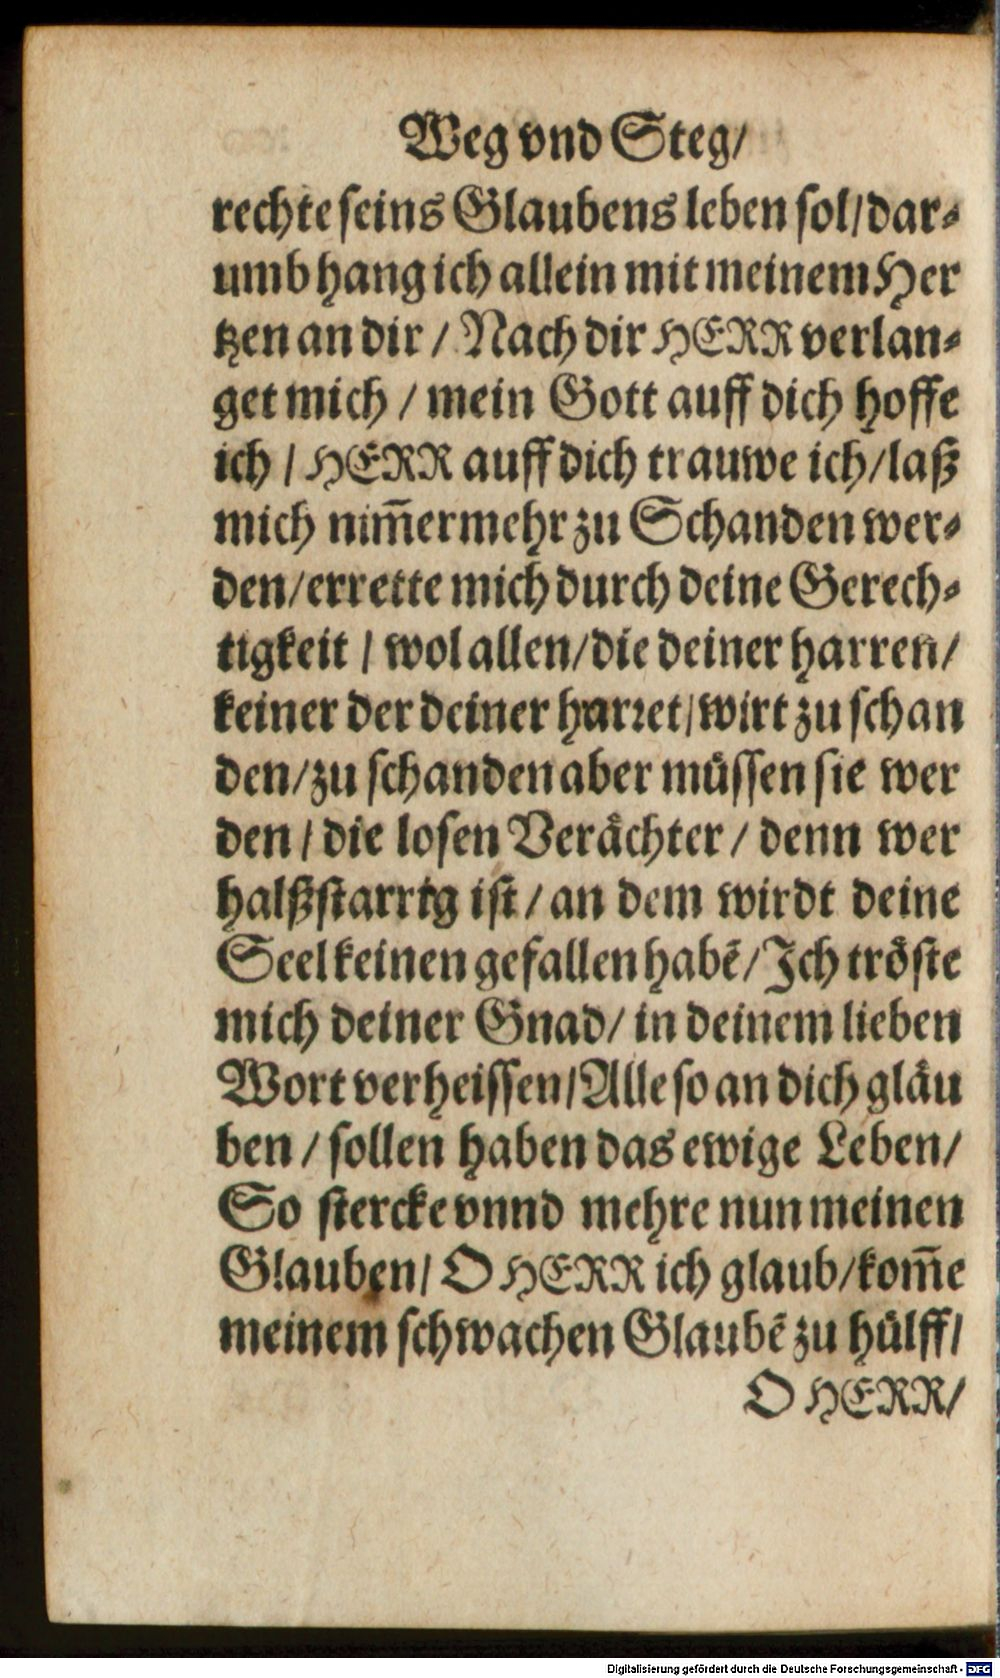 Weg vnd Steg/
rechte seins Glaubens leben sol/dar⸗
umb hang ich allein mit meinem Her
tzen an dir / Nach dir HERR verlan⸗
get mich / mein Gott auff dich hoffe
ich / HERR auff dich trauwe ich/laß
mich nim̅ermehr zu Schanden wer⸗
den/errette mich durch deine Gerech⸗
tigkeit / wol allen/die deiner harren/
keiner der deiner harꝛet/wirt zu schan
den/zu schanden aber müssen sie wer
den / die losen Verächter / denn wer
halßstarrig ist / an dem wirdt deine
Seel keinen gefallen habẽ/Ich tröste
mich deiner Gnad/ in deinem lieben
Wort verheissen/Alle so an dich gläu
ben / sollen haben das ewige Leben/
So stercke vnnd mehre nun meinen
Glauben/ O HERR ich glaub/kom̅e
meinem schwachen Glaubẽ zu hülff/
O HERR/
Digitalisierung gefördert durch die Deutsche Forschungsgemeinschaft - DFG